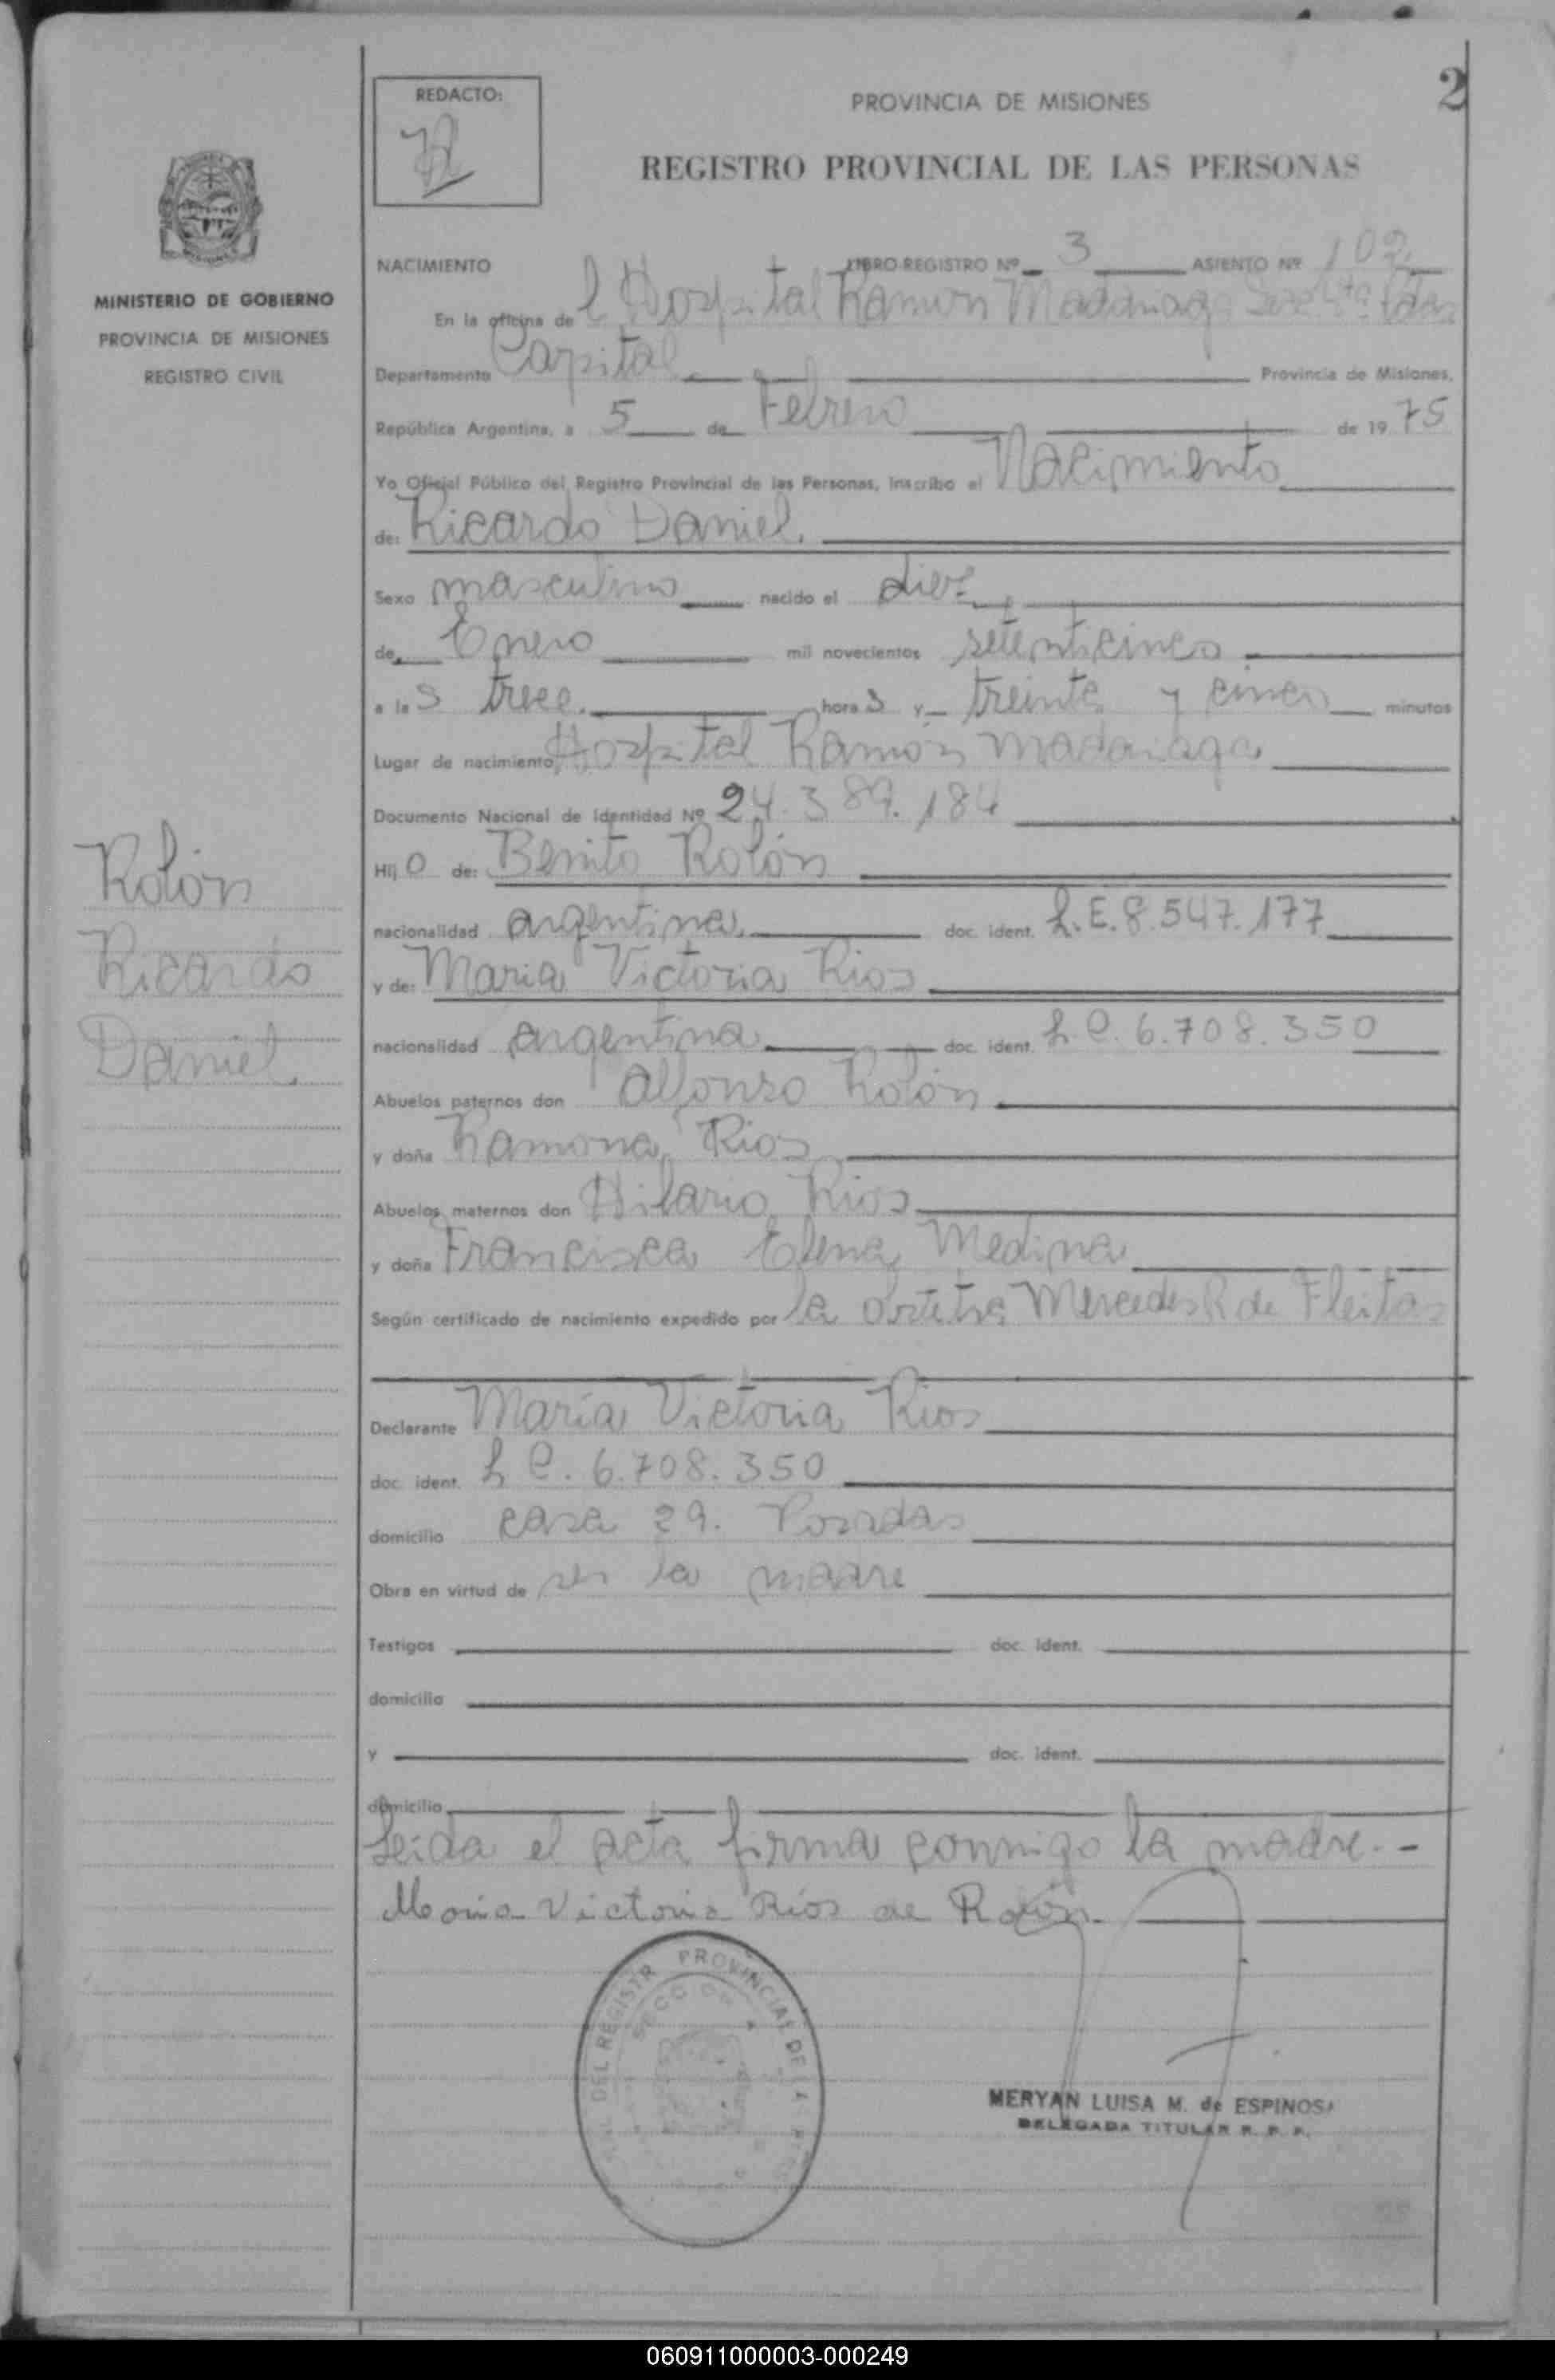 2
REDACTO:
PROVINCIA DE MISIONES
REGISTRO PROVINCIAL DE LAS PERSONAS
MINISTERIO DE GOBIERNO
PROVINCIA DE MISIONES
REGISTRO CIVIL
NACIMIENTO LIBRO REGISTRO Nº 3 ASIENTO Nº 102
En la oficina de l Hospital Ramon Madariaga
Departamento Capital Provincia de Misiones,
República Argentina, a 5 de Febrero de 1975
Yo Oficial Público del Registro Provincial de las Personas, Inscribo el Nacimiento
de: Ricardo Daniel.
Sexo masculino nacido el diez
de Enero mil novecientos setenticinco
a las trece. horas y treinta y cinco minutos
Lugar de nacimiento Hospital Ramón Madariaga
Documento Nacional de Identidad Nº 24.389.184
Hijo de: Benito Rolón
nacionalidad argentina. doc. ident. L.E. 8.547.177
y de: Maria Victoria Rios
nacionalidad argentina doc. ident. L.C. 6.708.350
Abuelos paternos don Alfonso Rolón
y doña Ramona Rios
Abuelos maternos don Hilario Rios
y doña Francisca Elena Medina
Según certificado de nacimiento expedido por la Mercedes R de Fleitas
Declarante María Victoria Rios
doc. ident. L C. 6.708.350
domicilio casa 29. Posadas
Obra en virtud de ser la madre
Testigos doc. ident.
domicilio
y doc. ident.
domicilio
Leida el acta firma conmigo la madre.-
Maria Victoria Ríos de Rolón.
Rolón
Ricardo
Daniel.
DEL REGISTR PROVINCIAL DE LAS
MERYAN LUISA M. de ESPINOSA
DELEGADA TITULAR R. P. P.
060911000003-000249